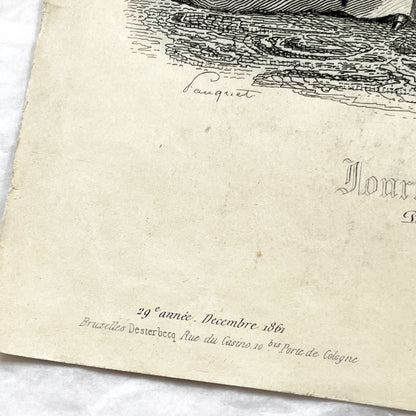 Pauquet
Journ
29e année. Decembre 1861
Bruxelles Desterbecq Rue du Casino, 10 bis Porte de Cologne